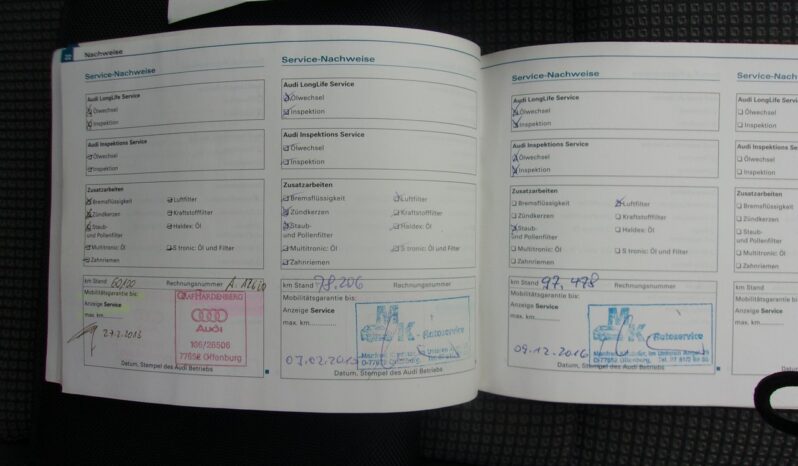 Nachweise
Service-Nachweise
Audi LongLife Service
Ölwechsel
Inspektion
Audi Inspektions Service
Ölwechsel
Inspektion
Zusatzarbeiten
Bremsflüssigkeit
Luftfilter
Zündkerzen
Kraftstofffilter
Staub-
und Pollenfilter
Haldex: Öl
Multitronic: Öl
S tronic: Öl und Filter
Zahnriemen
km Stand 60120 Rechnungsnummer
Mobilitätsgarantie bis:
Anzeige Service
max. km
27.2.2013
GRAF HARDENBERG
Audi
106/26506
77652 Offenburg
Datum, Stempel des Audi Betriebs
Service-Nachweise
Audi LongLife Service
Ölwechsel
Inspektion
Audi Inspektions Service
Ölwechsel
Inspektion
Zusatzarbeiten
Bremsflüssigkeit
Luftfilter
Zündkerzen
Kraftstofffilter
Staub-
und Pollenfilter
Haldex: Öl
Multitronic: Öl
S tronic: Öl und Filter
Zahnriemen
km Stand 78.206 Rechnungsnummer
Mobilitätsgarantie bis:
Anzeige Service
max. km
MK - Autoservice
Offenburg
Datum, Stempel des Audi Betriebs
Service-Nachweise
Audi LongLife Service
Ölwechsel
Inspektion
Audi Inspektions Service
Ölwechsel
Inspektion
Zusatzarbeiten
Bremsflüssigkeit
Luftfilter
Zündkerzen
Kraftstofffilter
Staub-
und Pollenfilter
Haldex: Öl
Multitronic: Öl
S tronic: Öl und Filter
Zahnriemen
km Stand 97.478 Rechnungsnummer
Mobilitätsgarantie bis:
Anzeige Service
max. km
09.12.2016
MK Autoservice
Offenburg
Datum, Stempel des Audi Betriebs
Service-Nachw
Audi LongLife Service
Ölwechsel
Inspektion
Audi Inspektions Serv
Ölwechsel
Inspektion
Zusatzarbeiten
Bremsflüssigkeit
Zündkerzen
Staub-
und Pollenfilter
Multitronic: Öl
Zahnriemen
km Stand
Mobilitätsgarantie
Anzeige Service
max. km